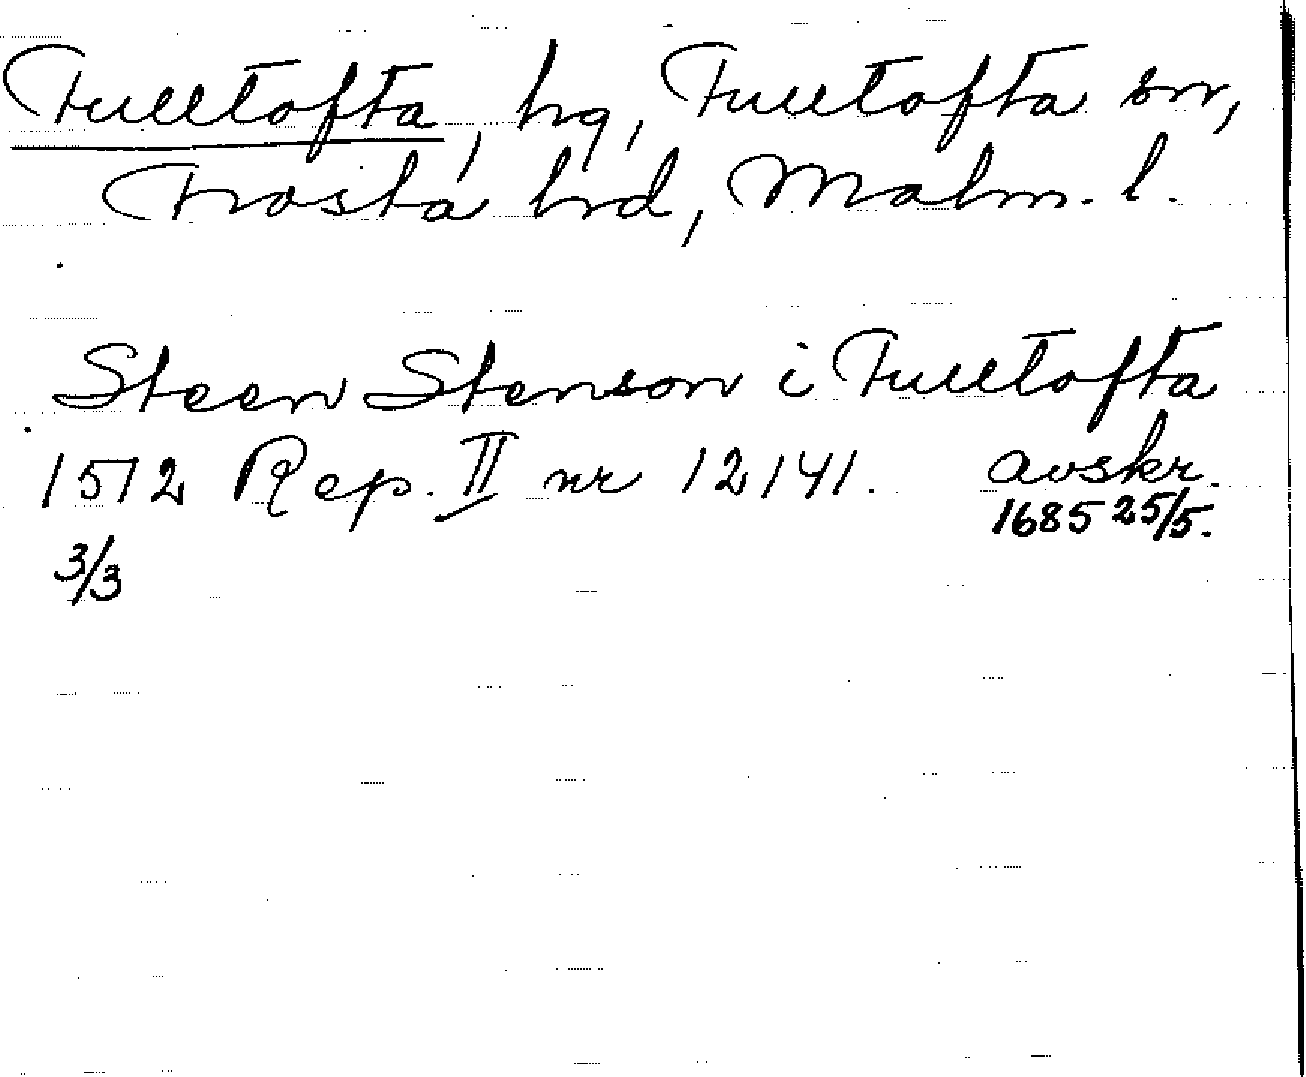 Fulltofta, hg, Fulltofta sn,
Frosta hrd, Malm. l.
Steen Stenson i Fulltofta
1512 Rep. II nr 12141. avskr.
1685 25/5.
3/3